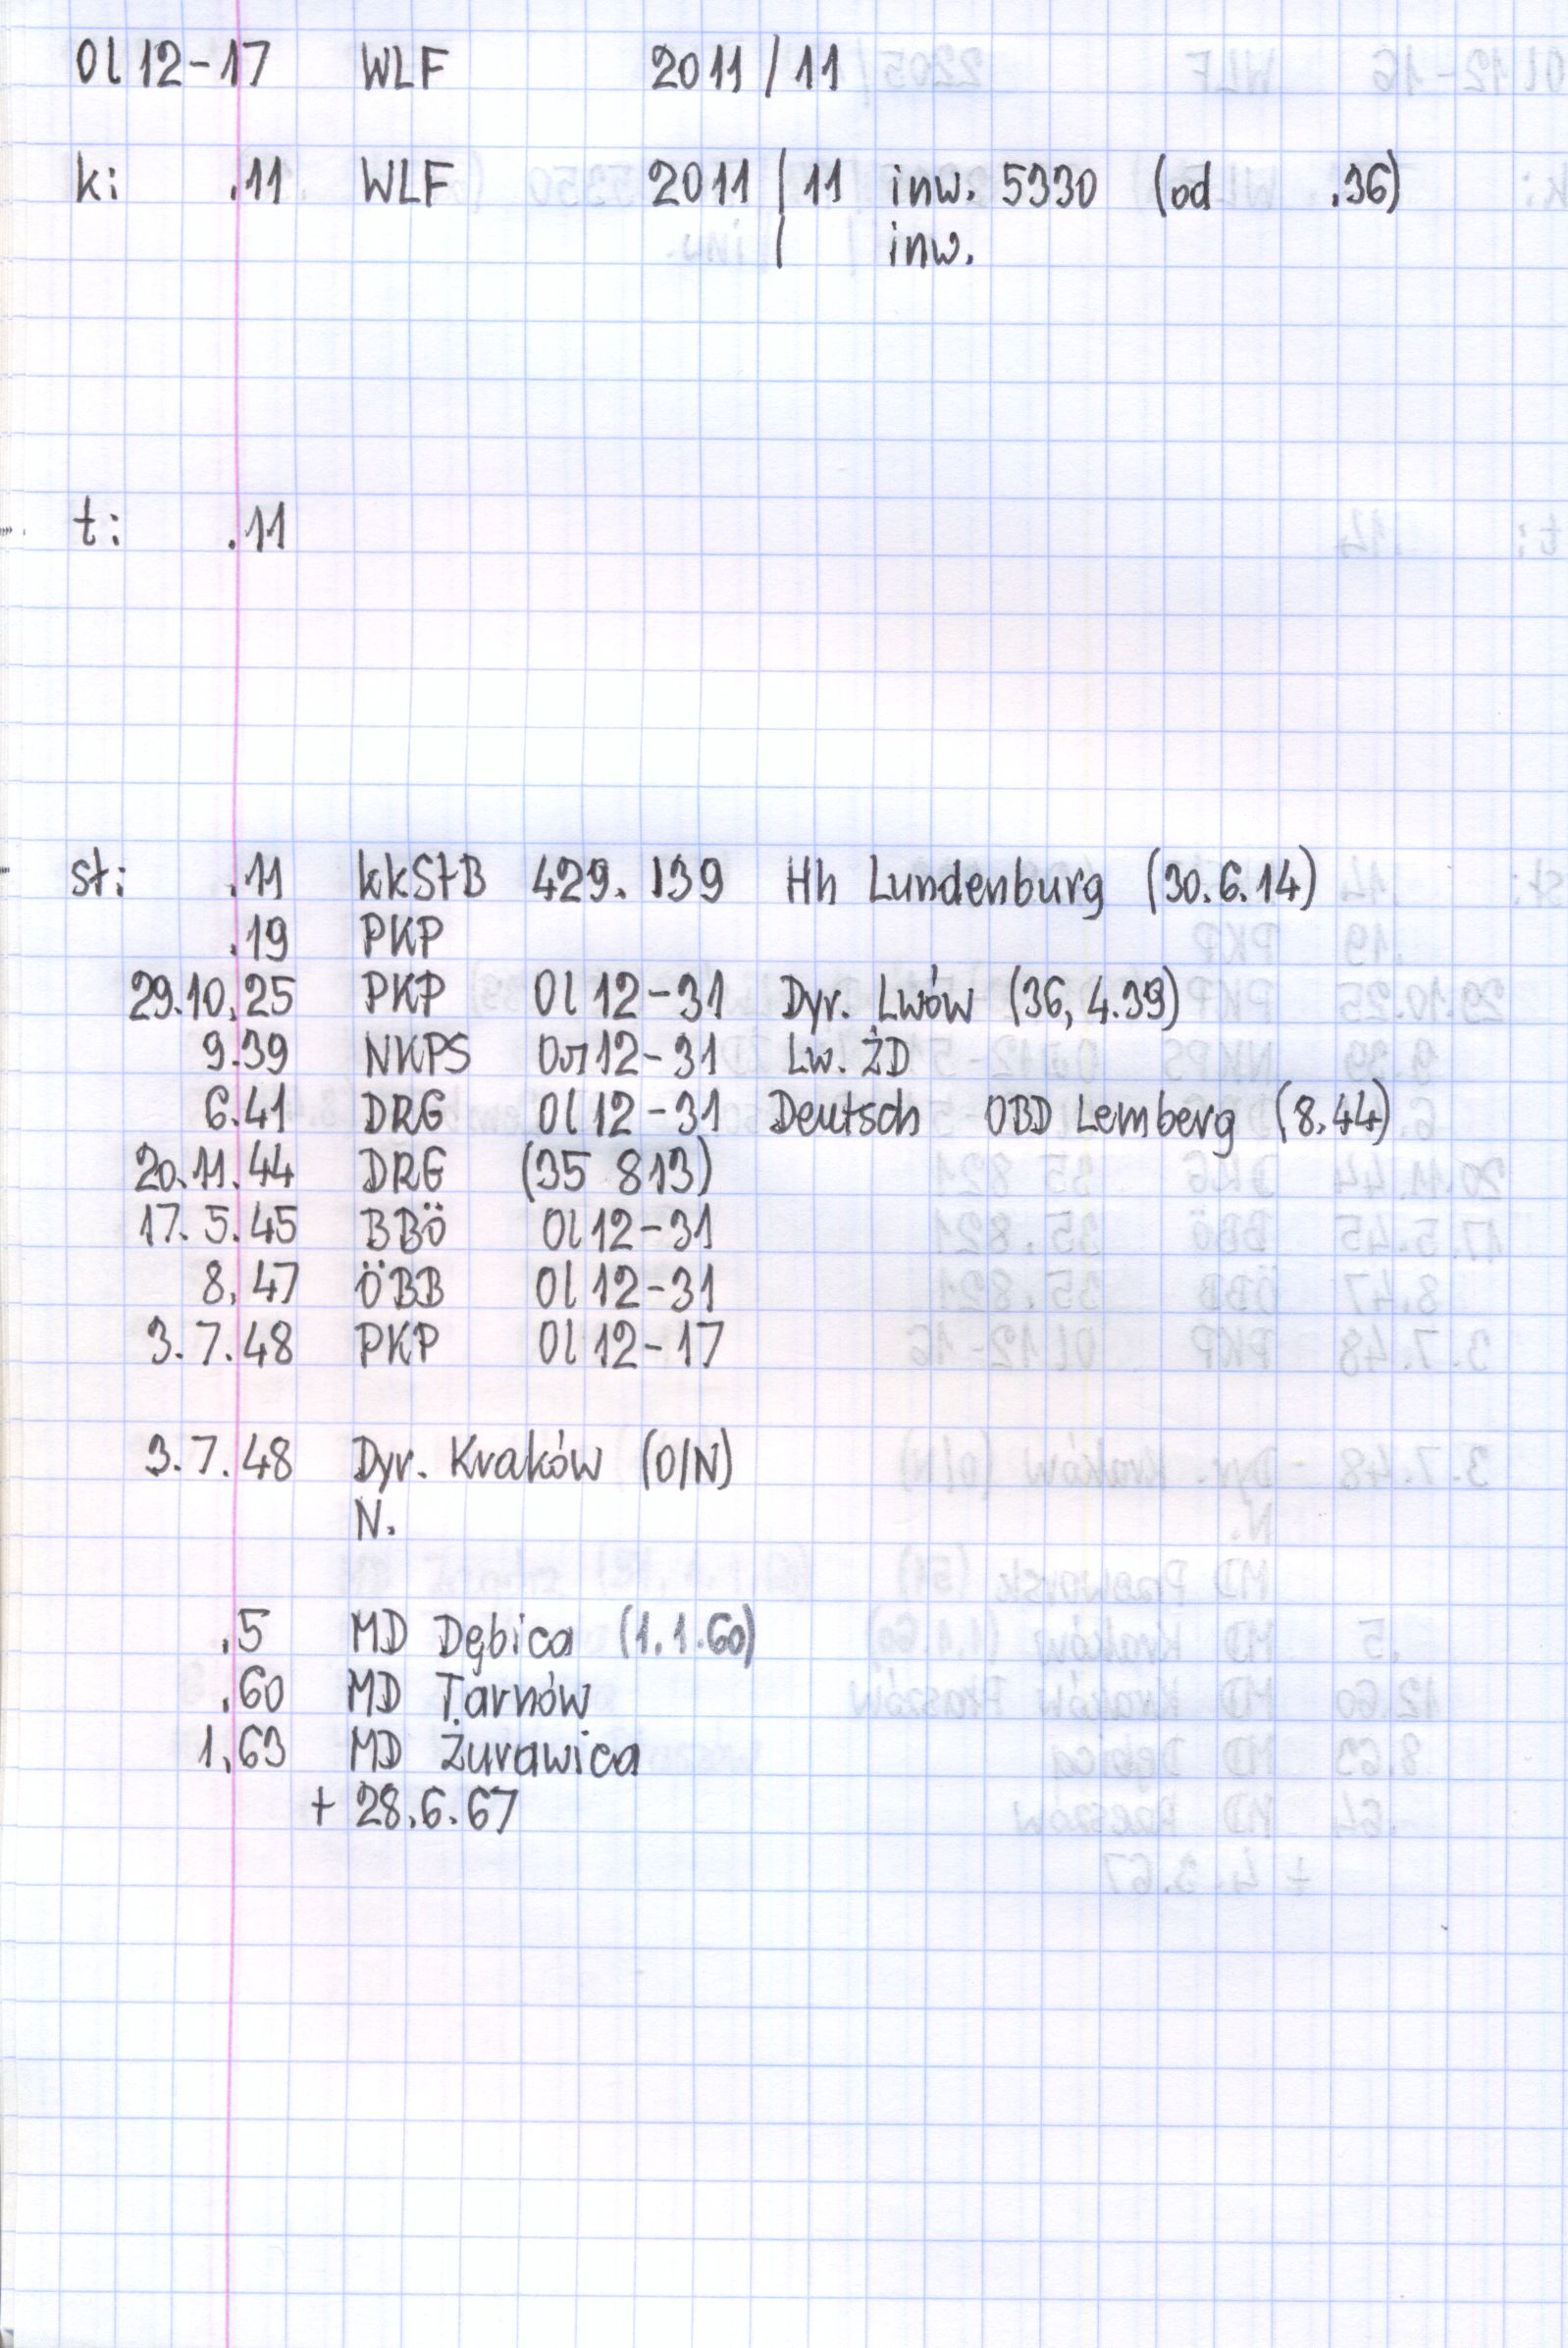 Ol 12-17 WLF 2011 / 11
k: .11 WLF 2011 / 11 inw. 5330 (od .36)
/ inw.
t: .11
st: .11 kkStB 429. 139 Hh Lundenburg (30.6.14)
.19 PKP
29.10.25 PKP Ol 12-31 Dyr. Lwów (36, 4.39)
9.39 NKPS Ол12-31 Lw. ŻD
6.41 DRG Ol 12-31 Deutsch OBD Lemberg (8.44)
20.11.44 DRG (35 813)
17.5.45 BBÖ Ol 12-31
8.47 ÖBB Ol 12-31
3.7.48 PKP Ol 12-17
3.7.48 Dyr. Kraków (O/N)
N.
.5 MD Dębica (1.1.60)
.60 MD Tarnów
1.63 MD Żurawica
+ 28.6.67